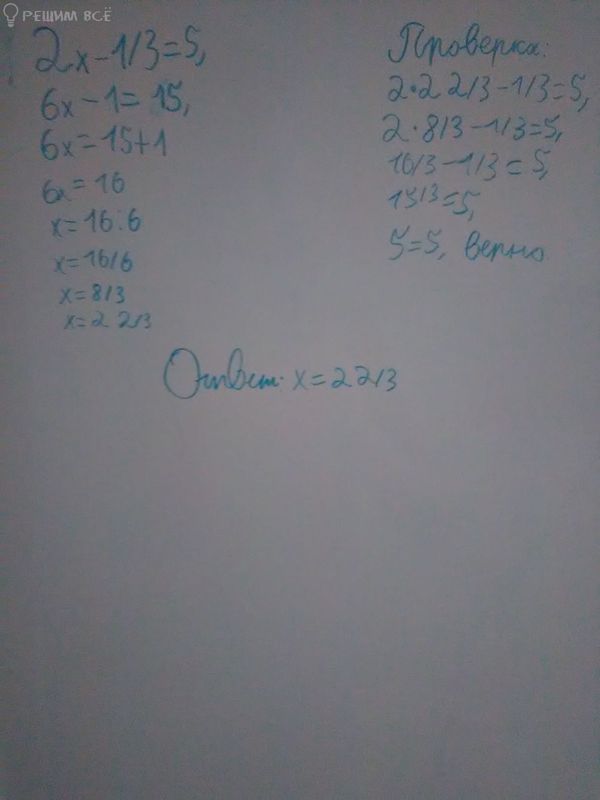 РЕШИМ ВСЁ
2x-1/3=5,
6x-1=15,
6x=15+1
6x=16
x=16:6
x=16/6
x=8/3
x=2 2/3
Проверка:
2•2 2/3-1/3=5,
2•8/3-1/3=5,
16/3-1/3=5,
15/3=5,
5=5, верно.
Ответ: x=2 2/3